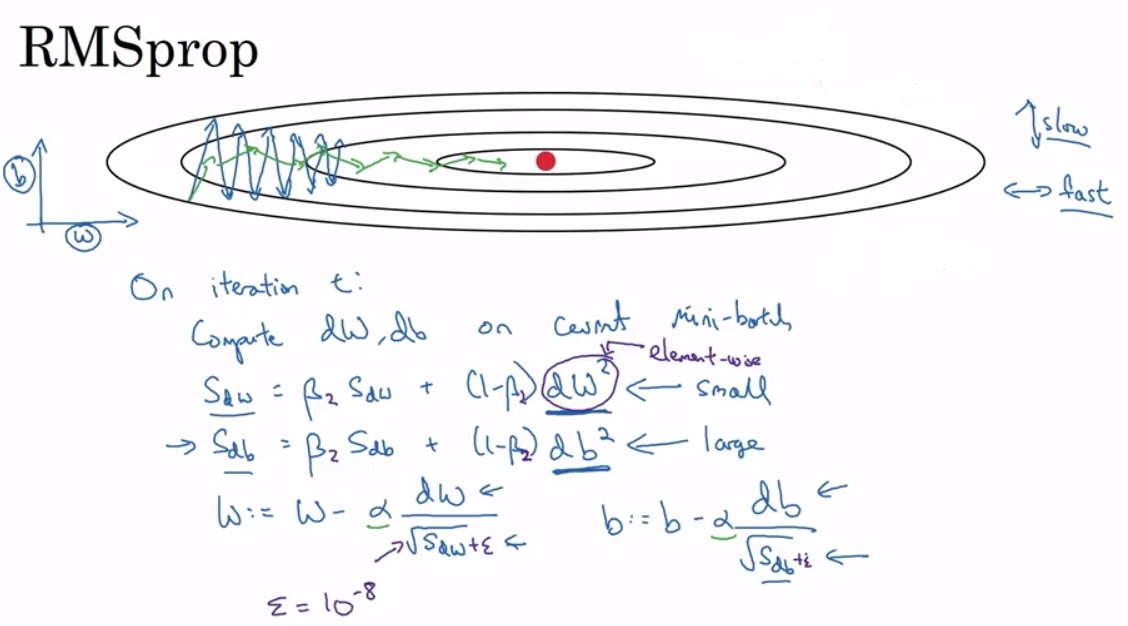 RMSprop
↕ slow
b
↔ fast
w
On iteration t:
Compute dW, db on current mini-batch
element-wise
S_dw = β₂ S_dw + (1-β₂) dW² ← small
→ S_db = β₂ S_db + (1-β₂) db² ← large
W := W - α dW ← / √S_dw + ε ← b := b - α db ← / √S_db + ε ←
ε = 10⁻⁸